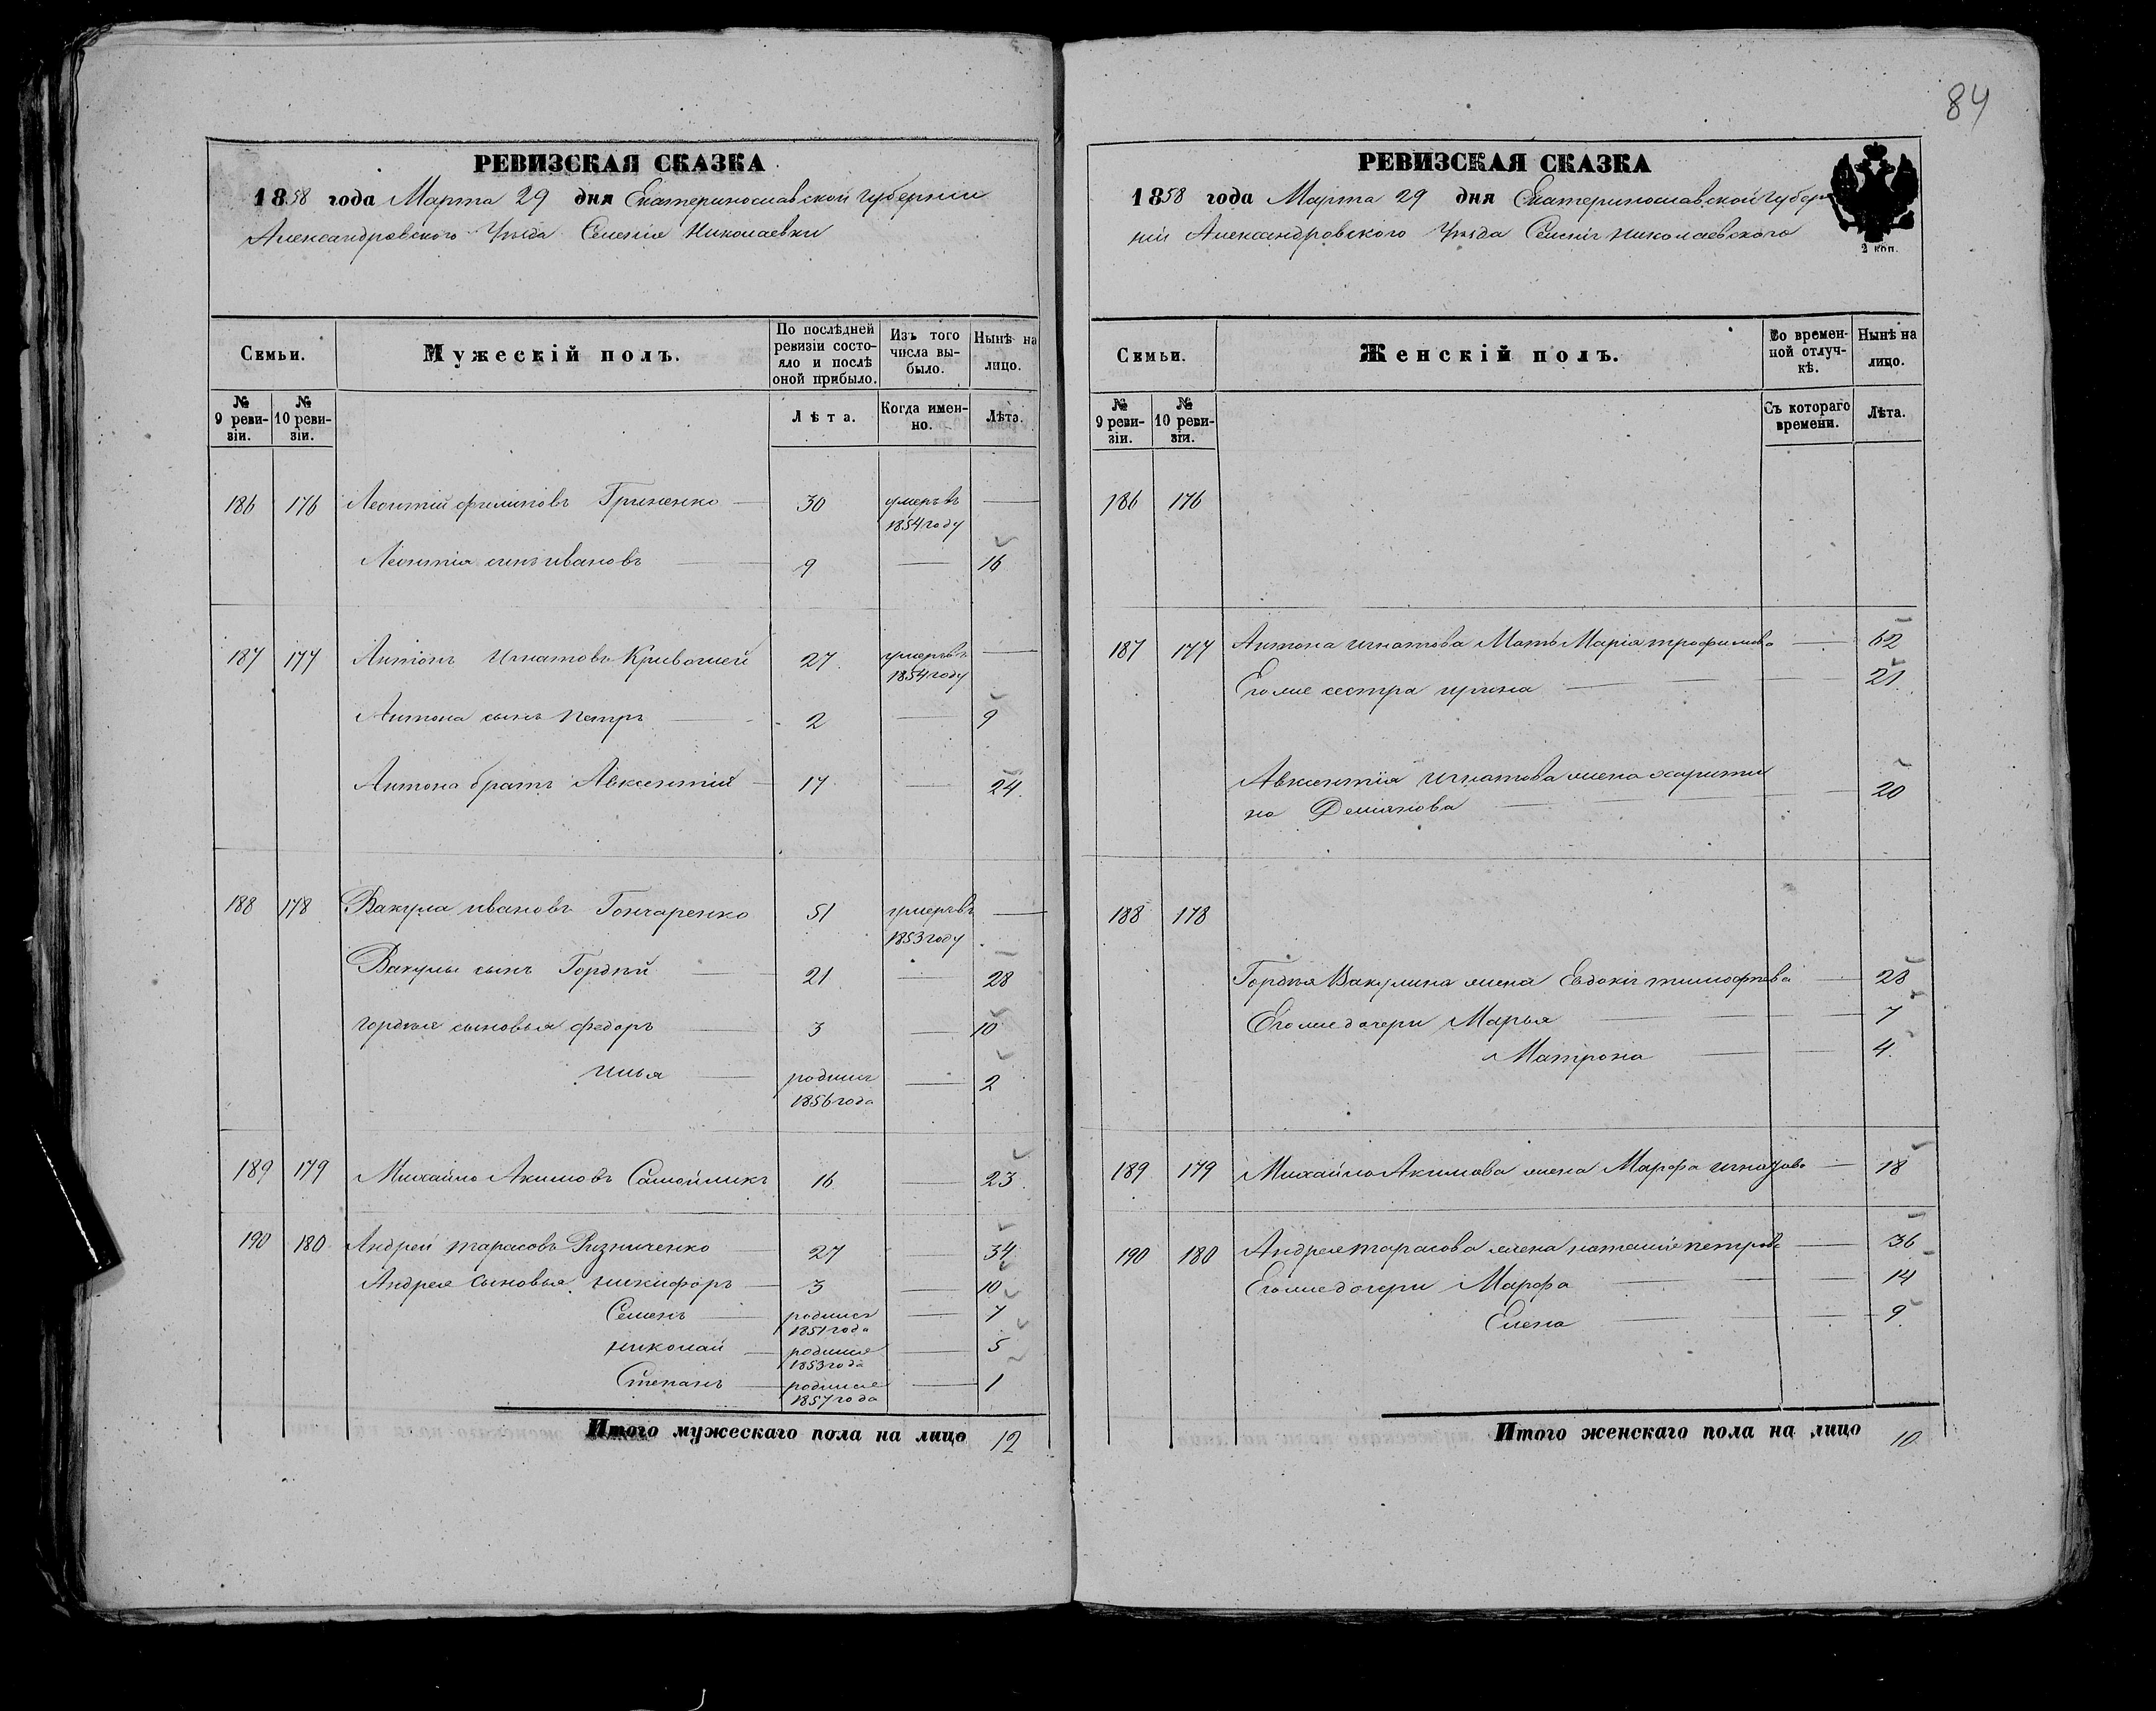 84
РЕВИЗСКАЯ СКАЗКА
1858 года Марта 29 дня Екатеринославской губернии
Александровского Уѣзда Селенія Николаевки
Семьи.
Мужескій полъ.
По послѣдней ревизіи состояло и послѣ оной прибыло.
Изъ того числа выбыло.
Нынѣ на лицо.
№ 9 ревизіи.
№ 10 ревизіи.
Лѣта.
Когда именно.
Лѣта.
186 176 Леонтій филиповъ Гриненко — 30 умеръ въ 1854 году —
Леонтія сынъ ивановъ — 9 — 16
187 177 Антонъ Игнатовъ Кривошей 27 умеръ въ 1854 году —
Антона сынъ петръ — 2 — 9
Антона братъ Авксентій — 17 — 24
188 178 Вакула ивановъ Гончаренко 51 умеръ въ 1853 году —
Вакулы сынъ Гордѣй — 21 — 28
гордѣя сыновья федоръ — 3 — 10
илья — родился 1856 года — 2
189 179 Михайло Акимовъ Самойликъ 16 — 23
190 180 Андрей тарасовъ Ризниченко 27 — 34
Андрея сыновья никифоръ — 3 — 10
Семенъ — родился 1851 года — 7
николай — родился 1853 года — 5
Степанъ — родился 1857 года — 1
Итого мужескаго пола на лицо 12
РЕВИЗСКАЯ СКАЗКА
1858 года Марта 29 дня Екатеринославской губер
ніи Александровского Уѣзда Селеніи николаевского
2 коп.
Семьи.
Женскій полъ.
Во временной отлучкѣ.
Нынѣ на лицо.
№ 9 ревизіи.
№ 10 ревизіи.
Съ котораго времени.
Лѣта.
186 176
187 177 Антона игнатова Мать Марія трофимова — 62
Его же сестра ирина — 21
Авксентія игнатова жена харити
на Демянова — 20
188 178
Гордѣя Вакулина жена Евдокія тимофѣева — 28
Его же дочери Марья — 7
Матрона — 4
189 179 Михайло Акимова жена Марфа игнатова — 18
190 180 Андрея тарасова жена наталія петрова — 36
Его же дочери Марфа — 14
Елена — 9
Итого женскаго пола на лицо 10